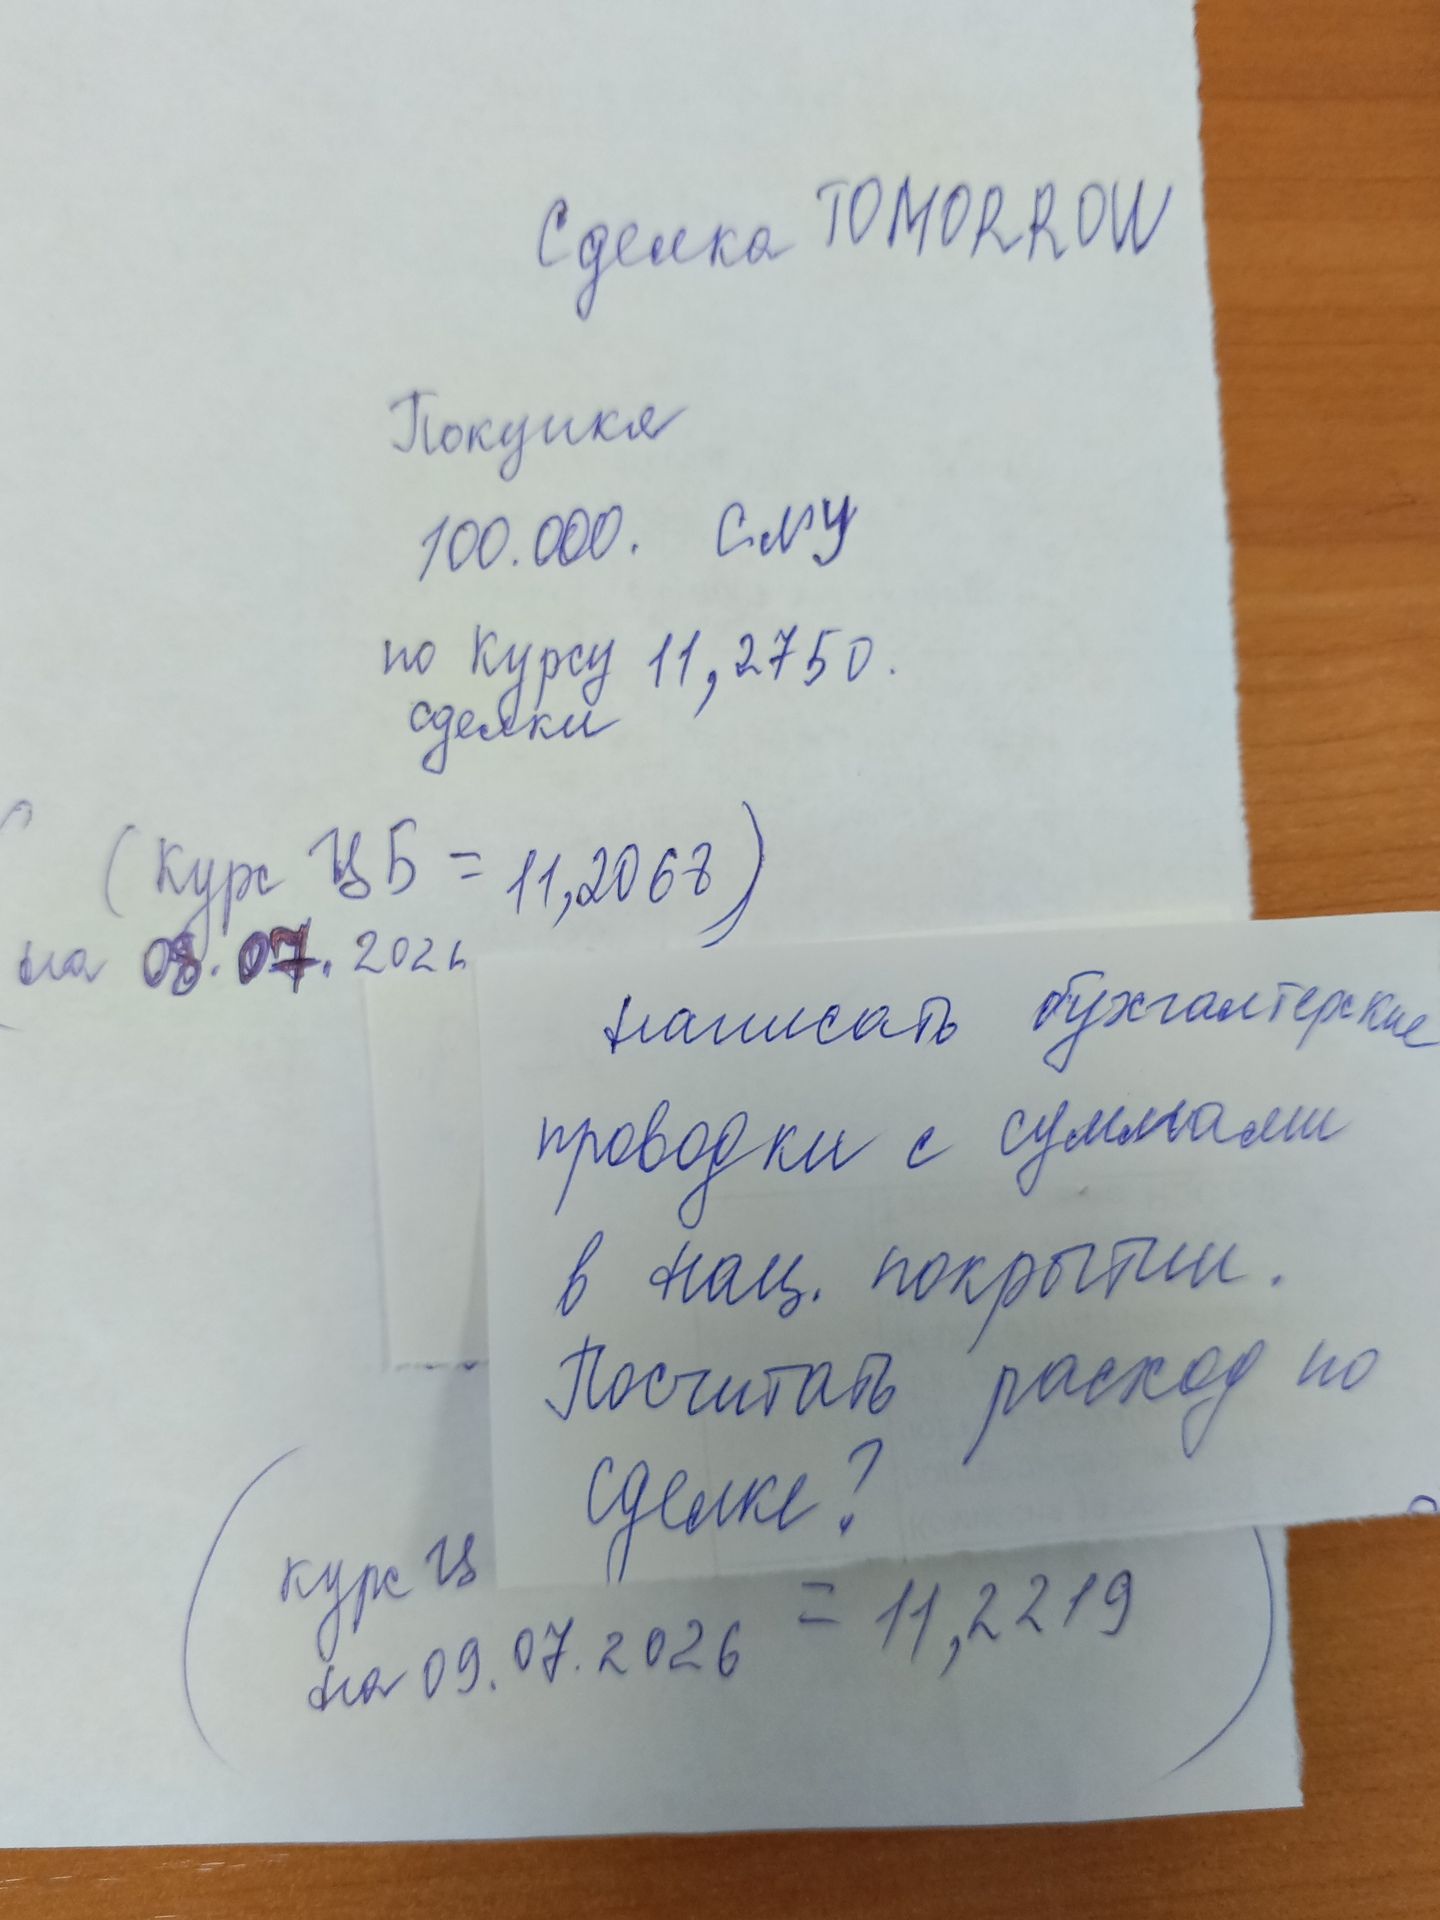 Сделка TOMORROW
Покупка
100.000. CNY
по курсу 11,2750.
сделки
(курс ЦБ = 11,2068)
на 08.07.2026
написать бухгалтерские
проводки с суммами
в нац. покрытии.
Посчитать расход по
сделке?
(курс Ц
на 09.07.2026 = 11,2219)